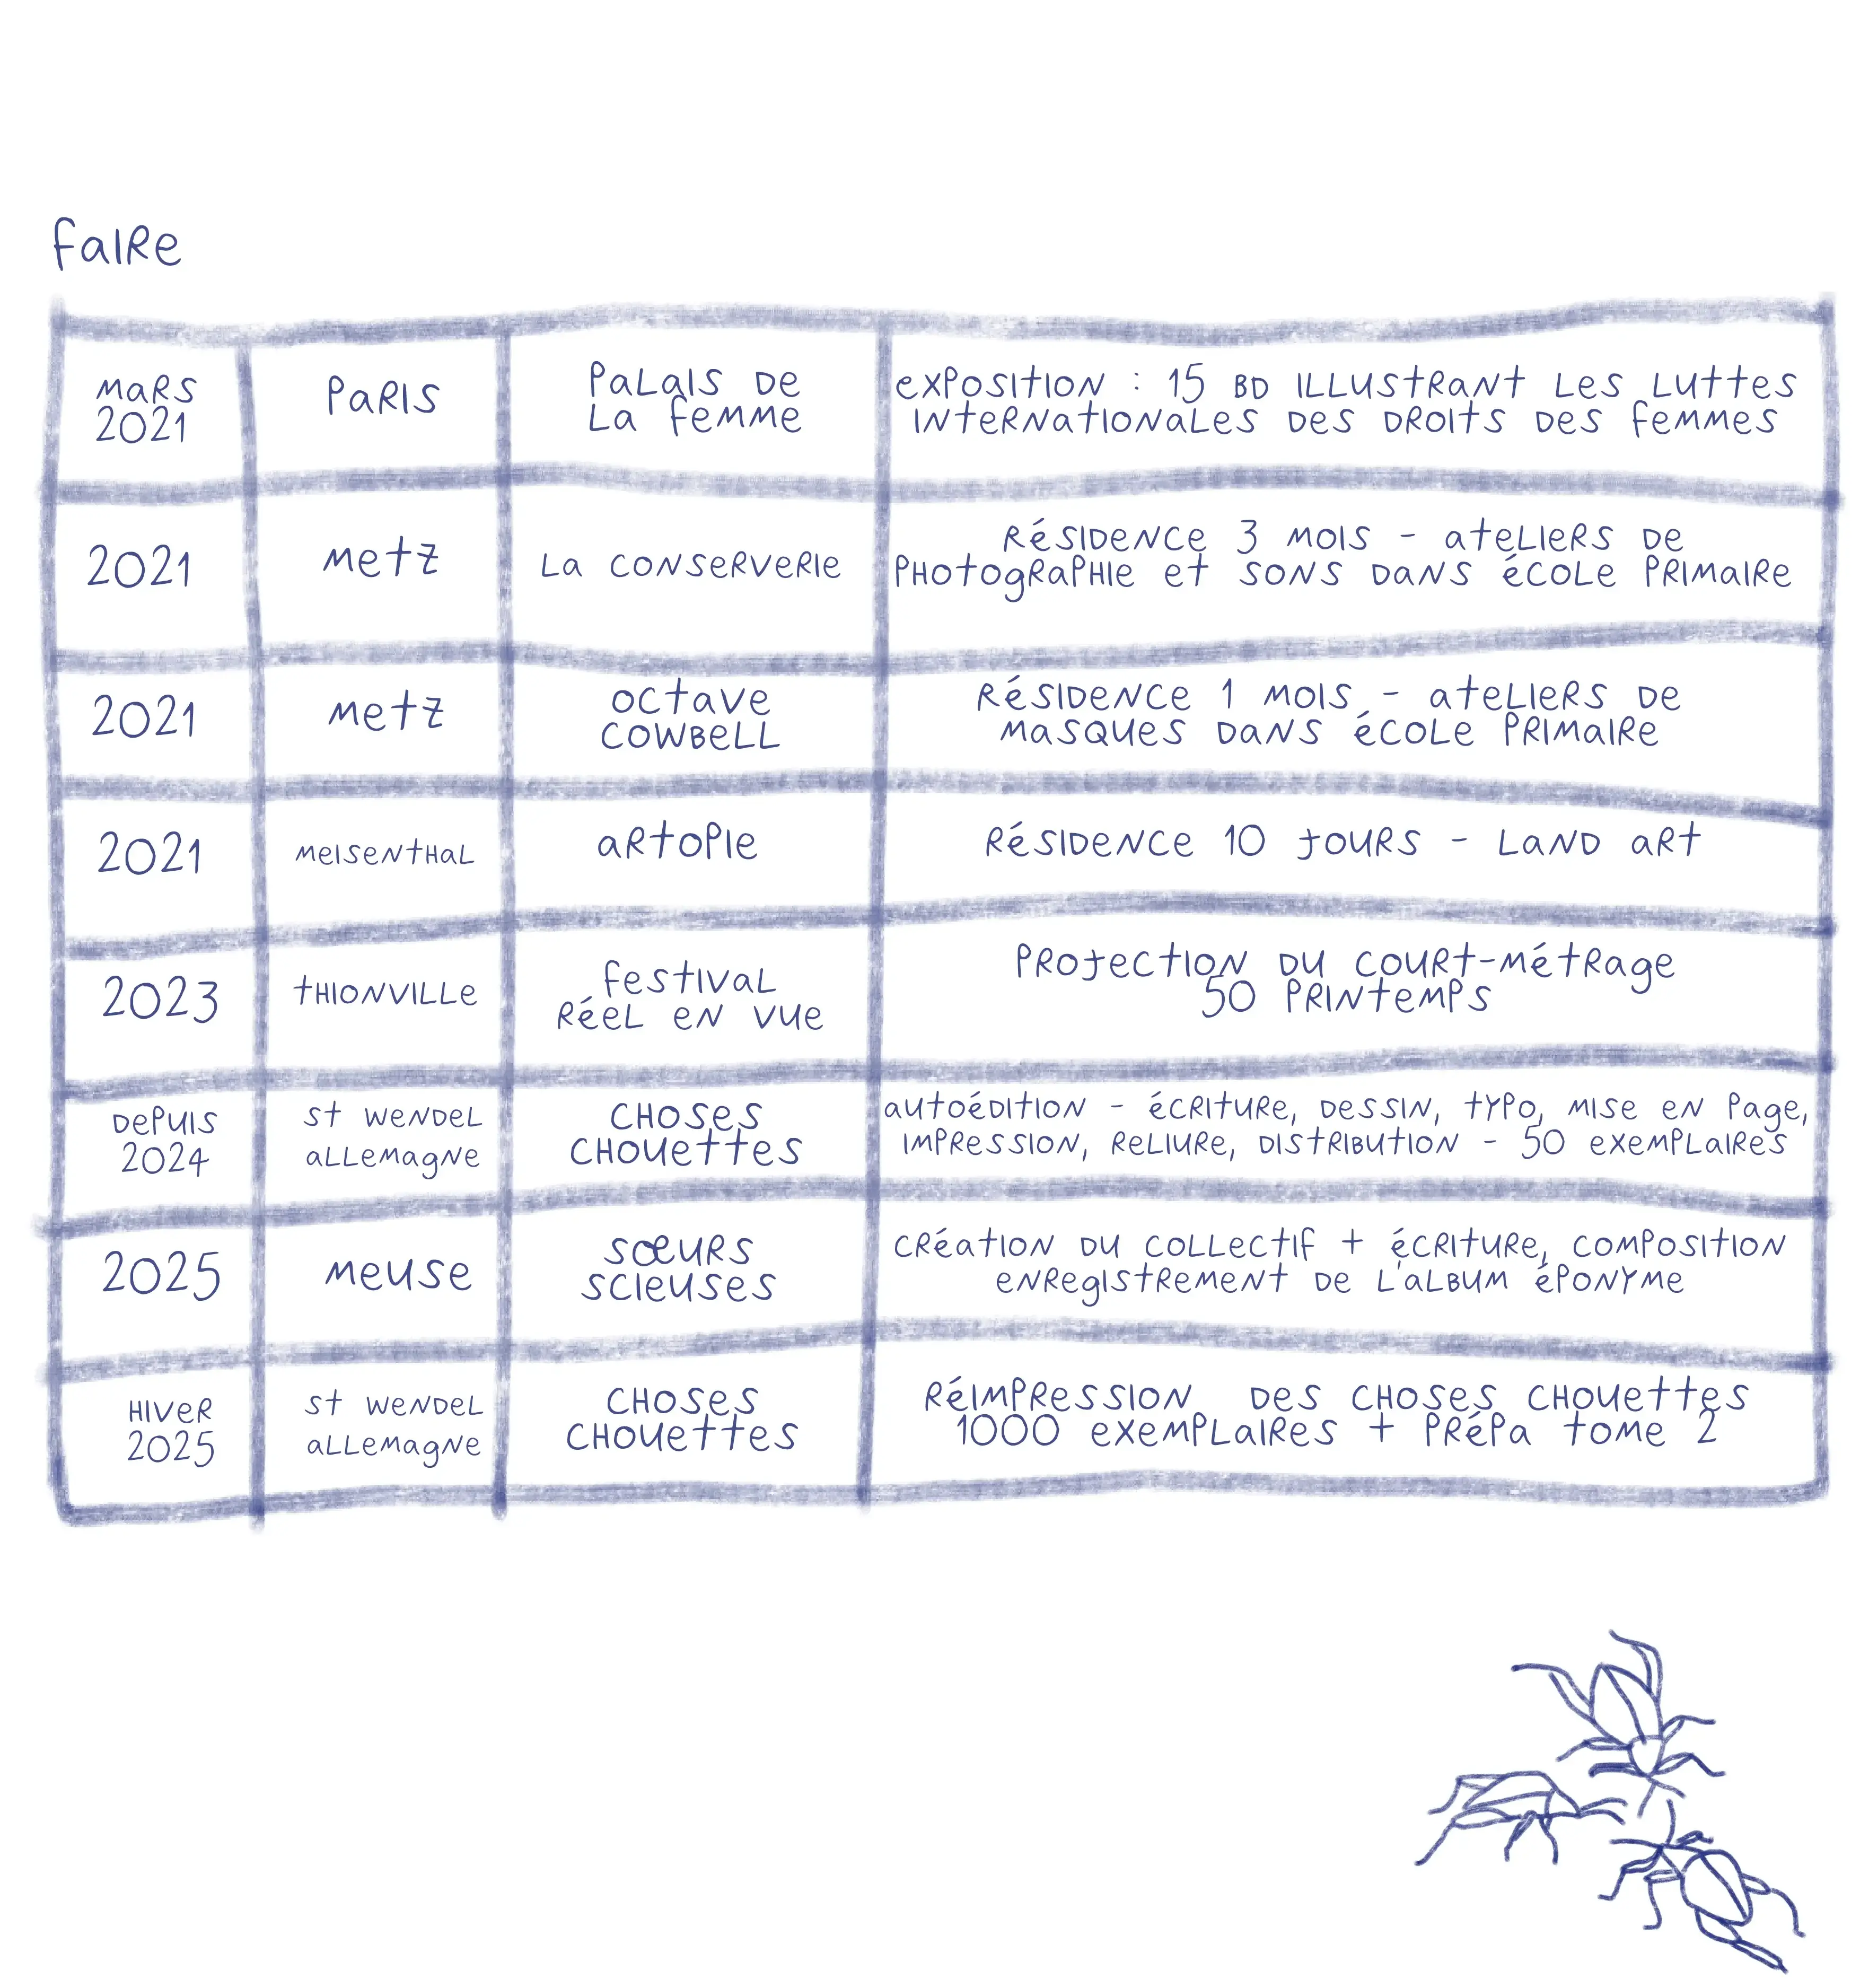 faire
mars
2021
Paris
Palais de
la femme
exposition : 15 BD illustrant les luttes
internationales des droits des femmes
2021
Metz
La conserverie
Résidence 3 mois - ateliers de
photographie et sons dans école primaire
2021
Metz
Octave
Cowbell
Résidence 1 mois - ateliers de
masques dans école primaire
2021
Meisenthal
Artopie
Résidence 10 jours - land art
2023
Thionville
festival
Réel en vue
Projection du court-métrage
50 printemps
Depuis
2024
St Wendel
Allemagne
Choses
Chouettes
autoédition - écriture, dessin, typo, mise en page,
impression, reliure, distribution - 50 exemplaires
2025
Meuse
Sœurs
Scieuses
création du collectif + écriture, composition
enregistrement de l'album éponyme
Hiver
2025
St Wendel
Allemagne
Choses
Chouettes
Réimpression des Choses Chouettes
1000 exemplaires + prépa tome 2